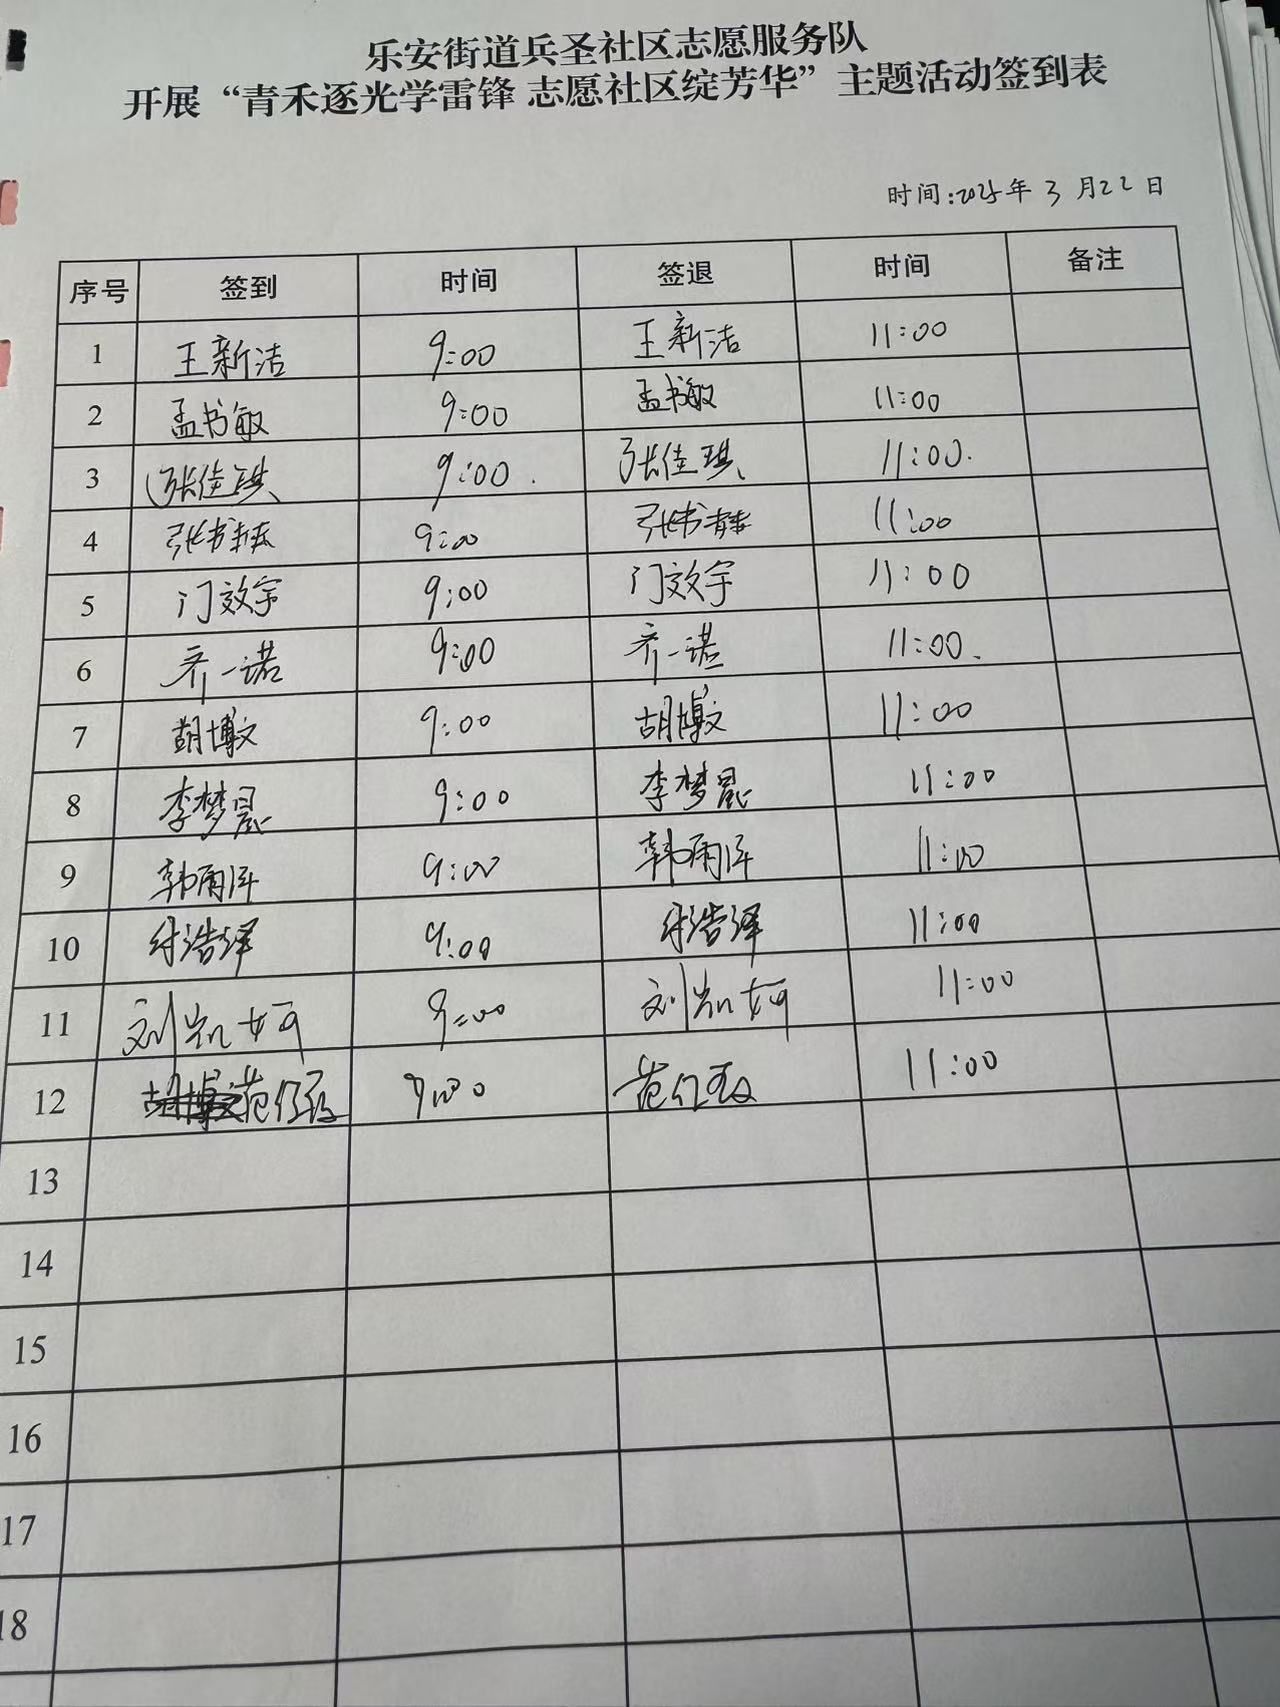 乐安街道兵圣社区志愿服务队
开展“青禾逐光学雷锋 志愿社区绽芳华”主题活动签到表
时间:2025年3月22日
序号 签到 时间 签退 时间 备注
1 王新洁 9:00 王新洁 11:00
2 孟书敏 9:00 孟书敏 11:00
3 张佳琪 9:00. 张佳琪 11:00.
4 9:00 11:00
5 门效宇 9:00 门效宇 11:00
6 齐一诺 9:00 齐一诺 11:00.
7 胡博文 9:00 胡博文 11:00
8 李梦晨 9:00 李梦晨 11:00
9 9:00 11:00
10 付浩泽 9:00 付浩泽 11:00
11 刘凯妸 9:00 刘凯妸 11:00
12 9:00 11:00
13
14
15
16
17
18